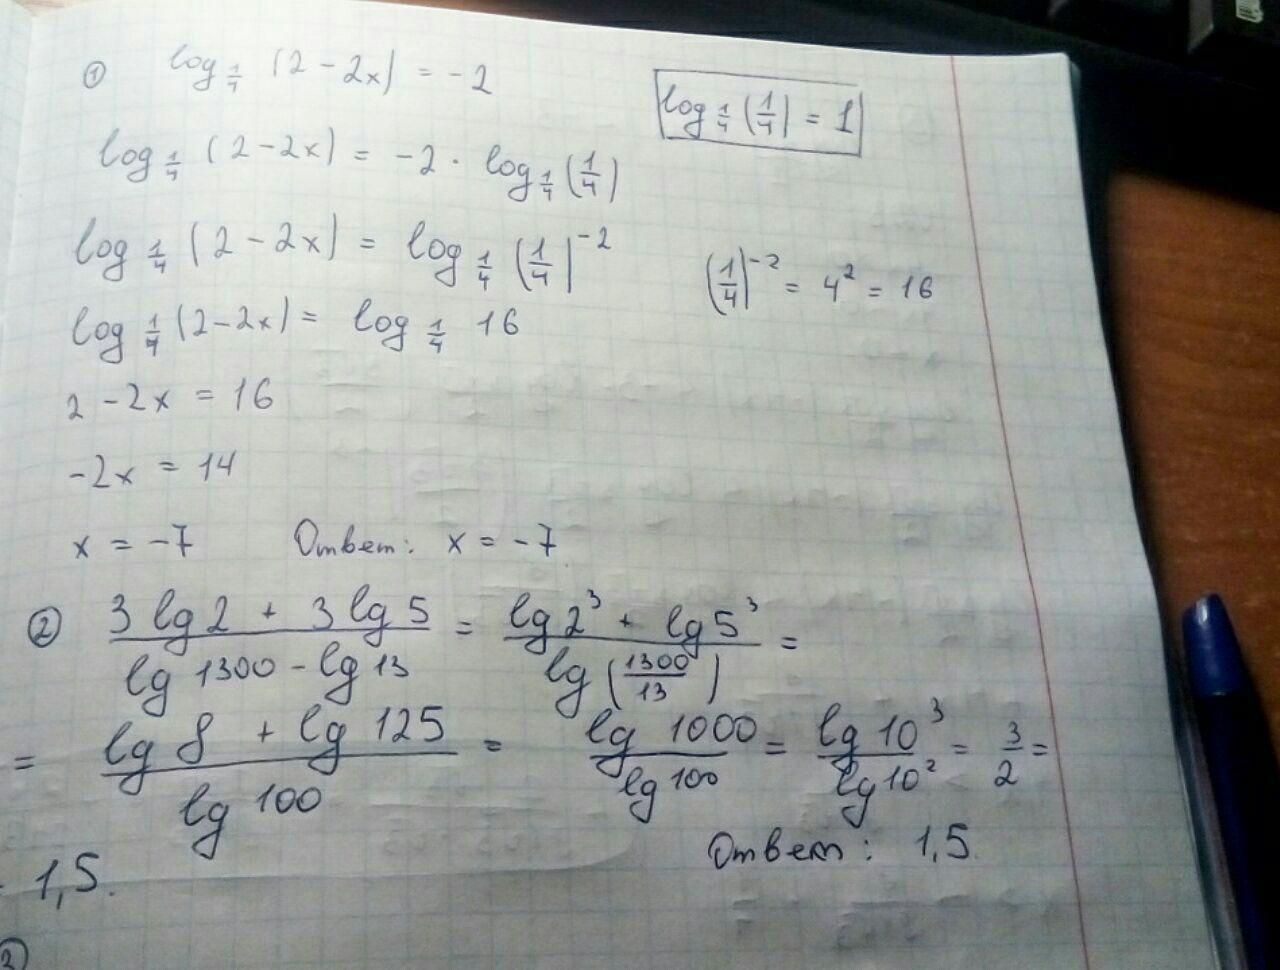 ① log_{1/4} (2 - 2x) = -2
log_{1/4} (1/4) = 1
log_{1/4} (2 - 2x) = -2 · log_{1/4} (1/4)
log_{1/4} (2 - 2x) = log_{1/4} (1/4)^{-2}
(1/4)^{-2} = 4² = 16
log_{1/4} (2 - 2x) = log_{1/4} 16
2 - 2x = 16
-2x = 14
x = -7 Ответ: x = -7
② (3 lg 2 + 3 lg 5)/(lg 1300 - lg 13) = (lg 2³ + lg 5³)/(lg (1300/13)) =
= (lg 8 + lg 125)/(lg 100) = (lg 1000)/(lg 100) = (lg 10³)/(lg 10²) = 3/2 =
1,5. Ответ: 1,5.